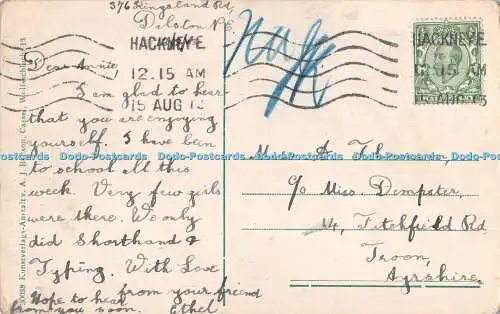 376 Kingsland Rd,
Dalston N.E.
HACKNEY.E
12.15 AM
15 AUG 13
Dear Annie,
I am glad to hear
that you are enjoying
yourself. I have been
to school all this
week. Very few girls
were there. We only
did Shorthand &
Typing. With Love
from your friend
Ethel
Hope to hear
from you soon.
HACKNEY.E
15 AM
Miss A.
c/o Miss Dempster,
14, Fitchfield Rd
Troon,
Ayrshire.
Kunstverlags-Anstalt
Dodo-Postcards Dodo-Postcards Dodo-Postcards Dodo-Postcards Dodo-Postcards Dodo-Postcards